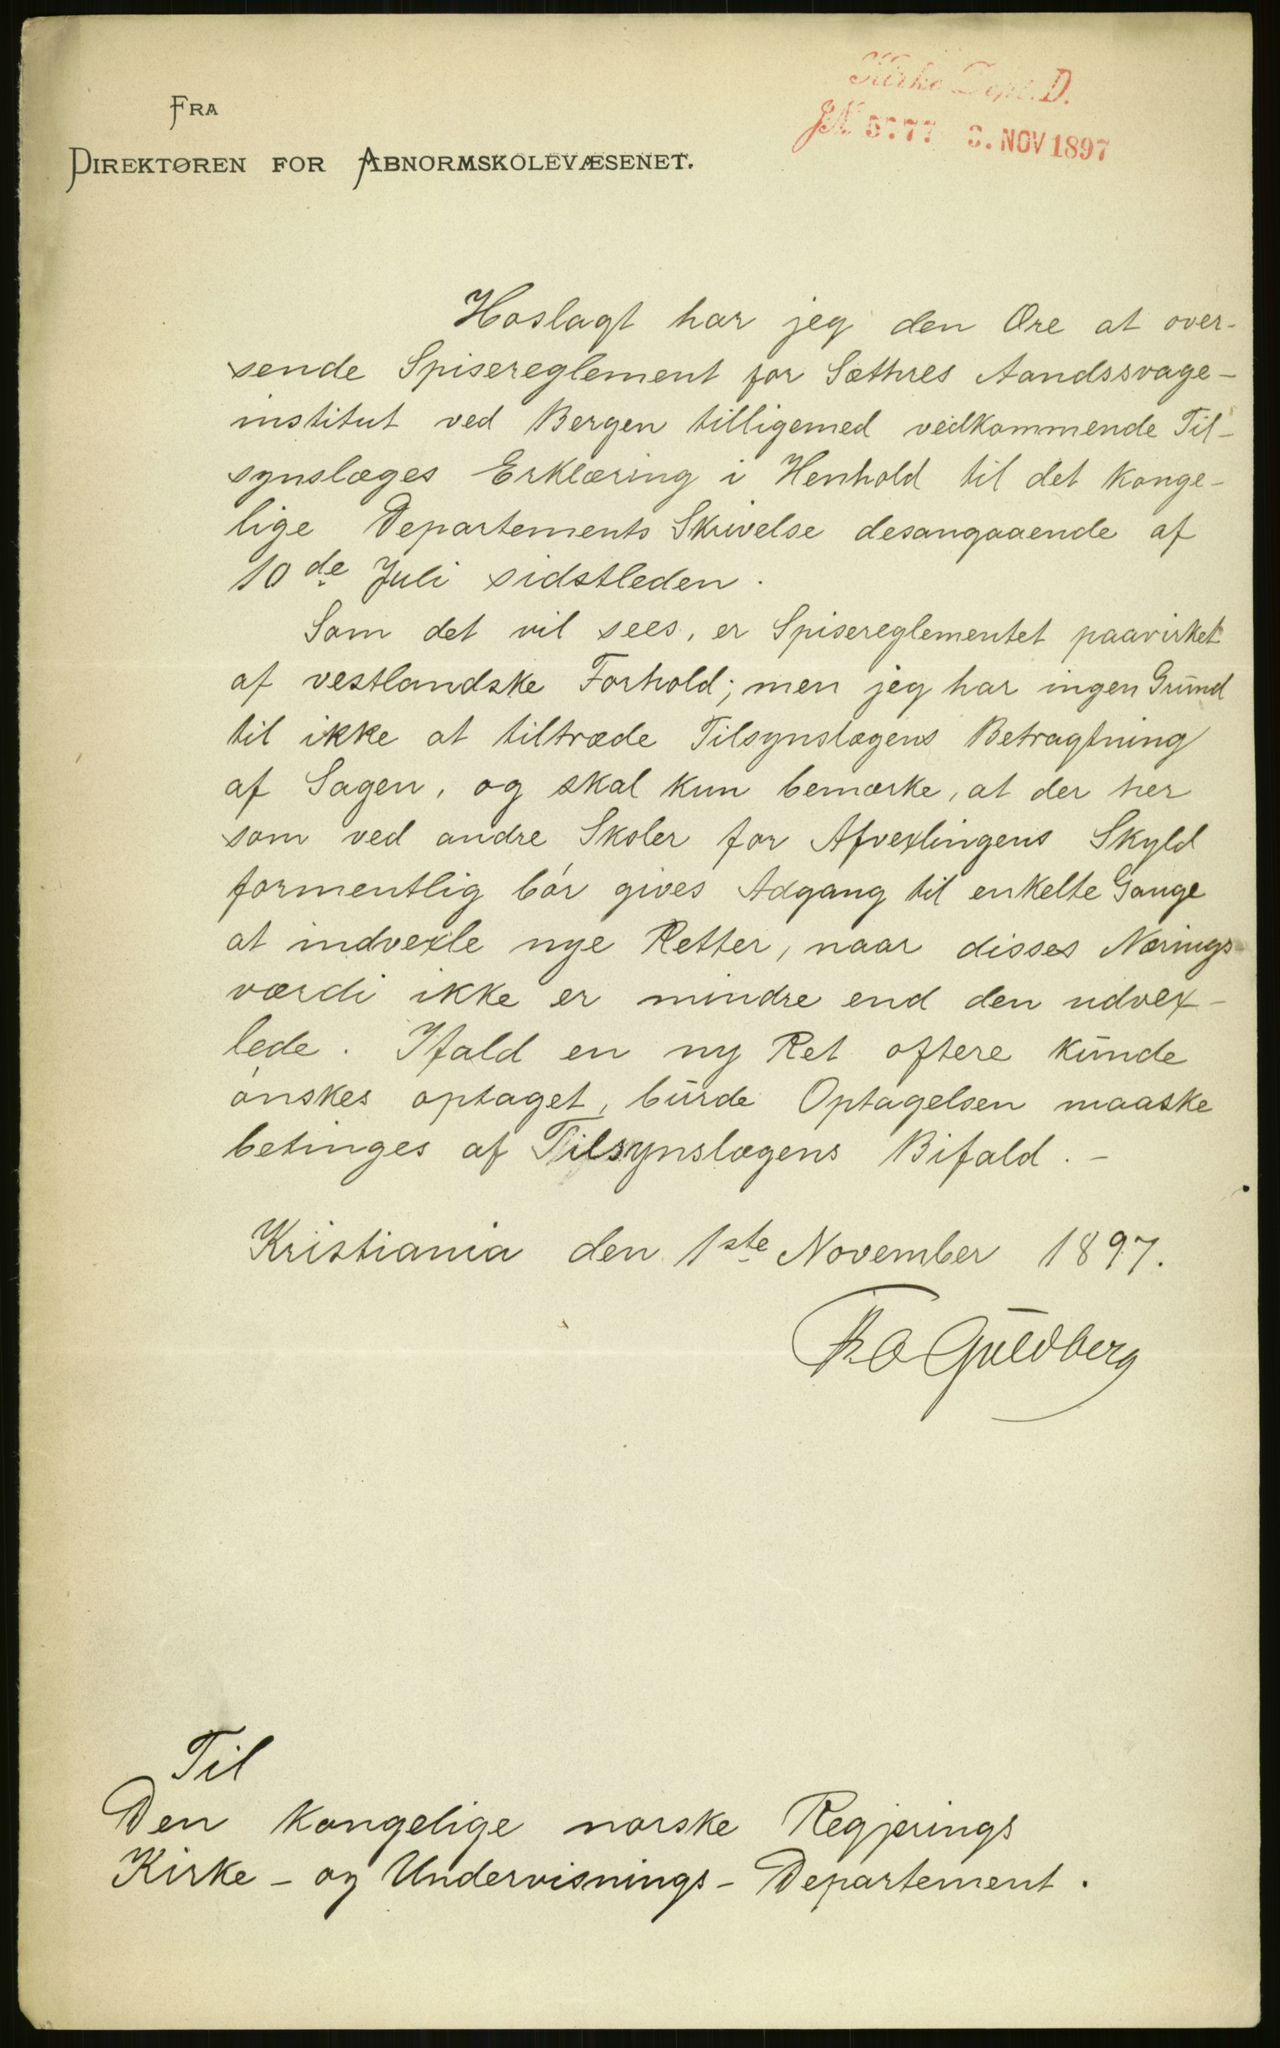 Kirke Dept. D.
FRA
JN 5777 3. NOV 1897
DIREKTØREN FOR ABNORMSKOLEVÆSENET.
Hoslagt har jeg den Ære at over-
sende Spisereglement for Sættres Aandssvage-
institut ved Bergen tilligemed vedkommende Til-
synslæges Erklæring i Henhold til det konge-
lige Departements Skrivelse desangaaende af
10de Juli sidstleden.
Som det vil sees, er Spisereglementet paavirket
af vestlandske Forhold; men jeg har ingen Grund
til ikke at tiltræde Tilsynslægens Betragtning
af Sagen, og skal kun bemærke, at der her
som ved andre Skoler for Afvexlingens Skyld
formentlig bør gives Adgang til enkelte Gange
at indvexle nye Retter, naar disses Nærings-
værdi ikke er mindre end den udvex-
lede. Ifald en ny Ret oftere kunde
ønskes optaget, burde Optagelsen maaske
betinges af Tilsynslægens Bifald. –
Kristiania den 1ste November 1897.
Guldberg
Til
Den kongelige norske Regjerings
Kirke- og Undervisnings-Departement.